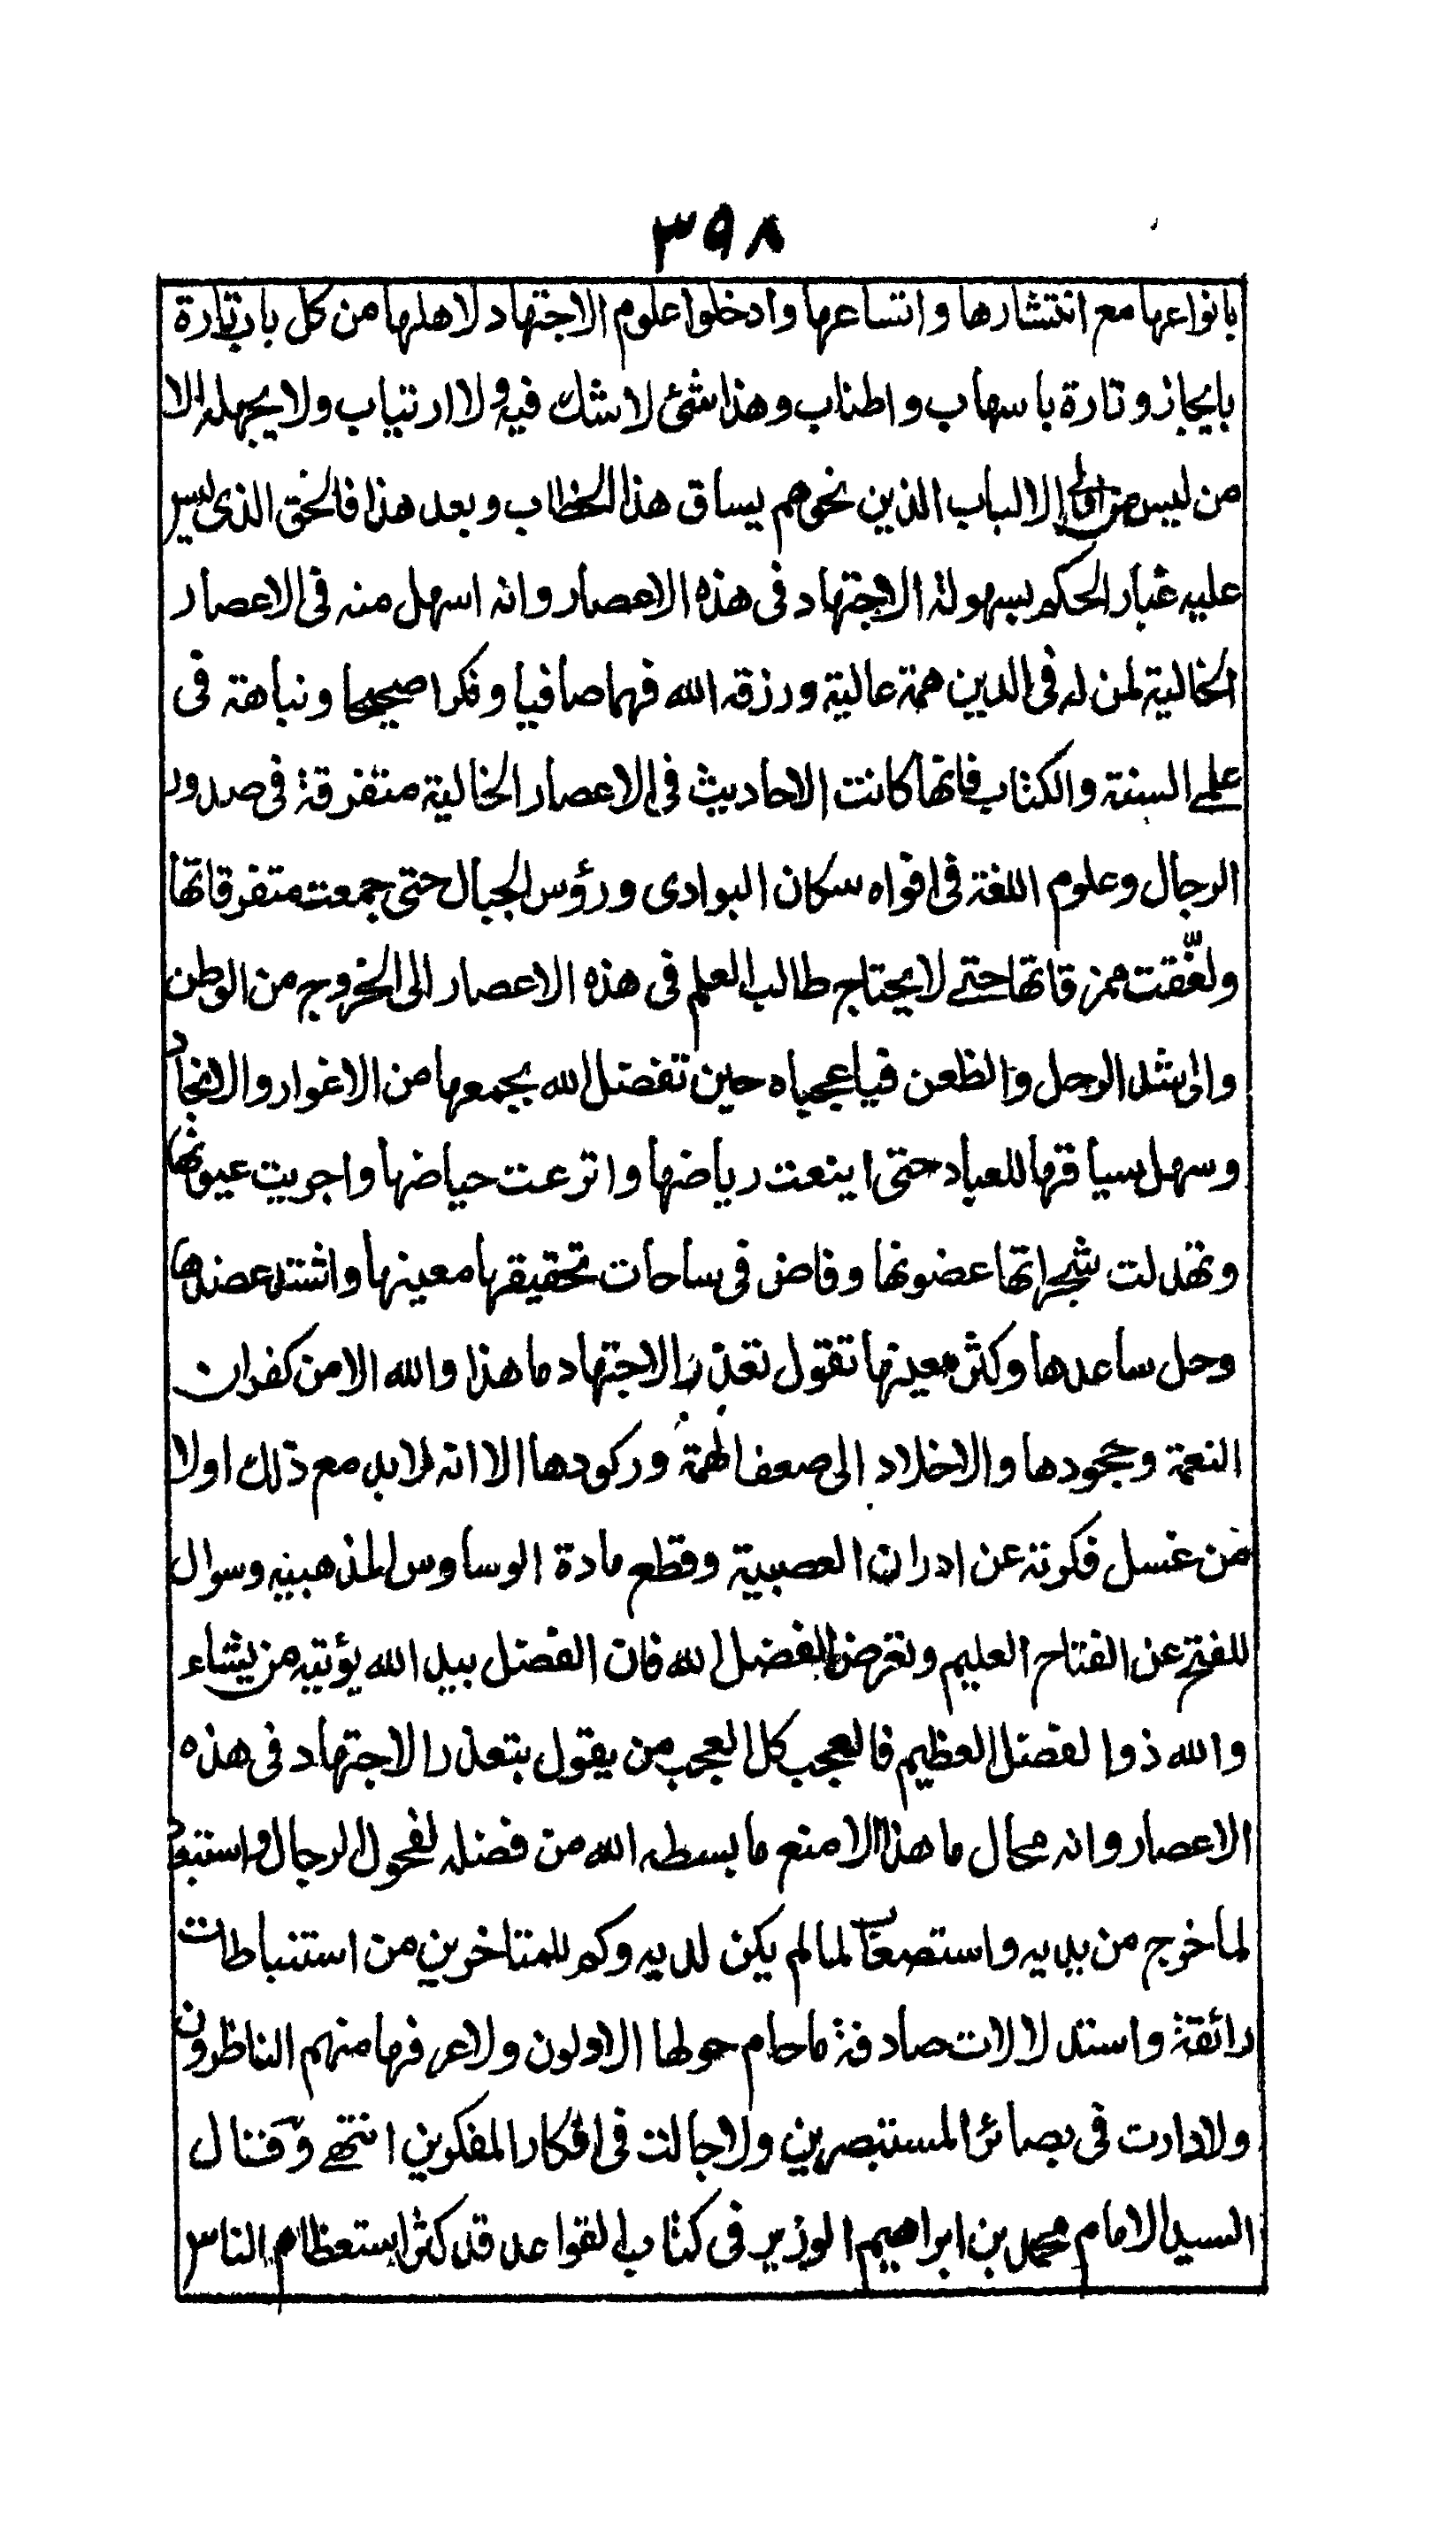 ٣٩٨
بانواعها مع انتشارها واتساعها وادخلوا علوم الاجتهاد لاهلها من كل باب تارة
بايجاز وتارة باسهاب واطناب وهذا شئ لا شك فيه ولا ارتياب ولا يجهله الا
من ليس من اولى الالباب الذين نحوهم يساق هذا الخطاب وبعد هذا فالحق الذى ليس
عليه غبار الحكم بسهولة الاجتهاد فى هذه الاعصار وانه اسهل منه فى الاعصار
الخالية لمن له فى الدين همة عالية ورزقه الله فهما صافيا وفكرا صحيحا ونباهة فى
علمى السنة والكتاب فانها كانت الاحاديث فى الاعصار الخالية متفرقة فى صدور
الرجال وعلوم اللغة فى افواه سكان البوادى ورؤس الجبال حتى جمعت متفرقاتها
ولفقت ممزقاتها حتى لا يحتاج طالب العلم فى هذه الاعصار الى الخروج من الوطن
والى شد الرحل والظعن فيا عجباه حين تفضل الله بجمعها من الاغوار والانجاد
وسهل سياقها للعباد حتى اينعت رياضها واترعت حياضها واجريت عيونها
وتهدلت شجراتها غصونها وفاض فى ساحات تحقيقها معينها واشتد عضدها
وحل ساعدها وكثر معينها تقول تعذر الاجتهاد ما هذا والله الا من كفران
النعمة وجحودها والاخلاد الى ضعف الهمة وركودها الا انه لا بد مع ذلك اولا
من غسل فكرته عن ادران العصبية وقطع مادة الوساوس المذهبيه وسوال
للفتح عن الفتاح العليم وتعرض لفضل الله فان الفضل بيد الله يؤتيه من يشاء
والله ذو الفضل العظيم فالعجب كل العجب من يقول بتعذر الاجتهاد فى هذه
الاعصار وانه محال ما هذا الا منع ما بسطه الله من فضله لفحول الرجال واستبعاد
لما خرج من يديه واستصعاب لما لم يكن لديه وكم للمتاخرين من استنباطات
رائقة واستدلالات صادقة ما حام حولها الاولون ولا عرفها منهم الناظرون
ولا دارت فى بصائر المستبصرين ولا جالت فى افكار المفكرين انتهى وقال
السيد الامام محمد بن ابراهيم الوزير فى كتاب القواعد قد كثر استعظام الناس